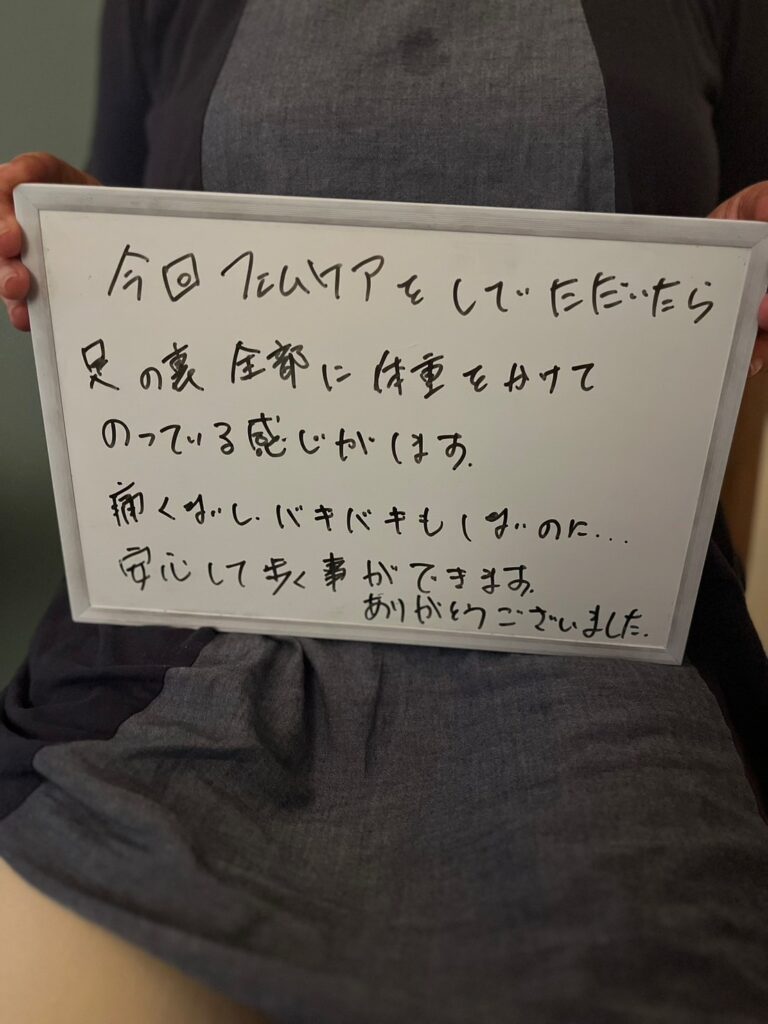 今回 フェムケア を して いただいたら
足の裏 全部に 体重をかけて
のっている感じがします。
痛くないし、バキバキもしないのに...
安心して歩く事ができます。
ありがとうございました。